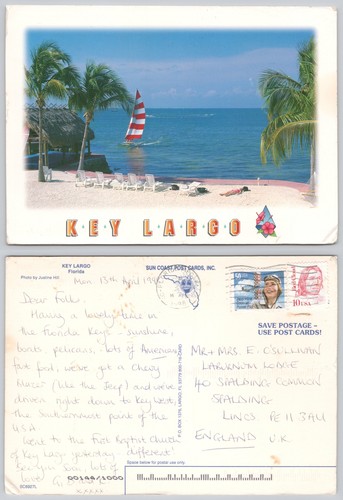 KEY LARGO
KEY LARGO
Florida
Photo by Justine Hill
SUN COAST POST CARDS, INC.
Mon. 13th April 199
Dear Folks,
Having a lovely time in
the Florida Keys. Sunshine,
boats, pelicans - lots of American
fast food, we've got a Chevy
Blazer (like the Jeep) and we've
driven right down to Key West
the Southernmost point of the
USA
Went to the First Baptist Church
of Key Largo yesterday - different!
See you soon, lots of
love
P.O. BOX 1375, LARGO, FL 33779
SAVE POSTAGE -
USE POST CARDS!
MR + MRS E. O'SULLIVAN
LABURNUM LODGE
40 SPALDING COMMON
SPALDING
LINCS PE11 3AU
ENGLAND U.K.
00144/1000
Space below for postal use only.
10 USA